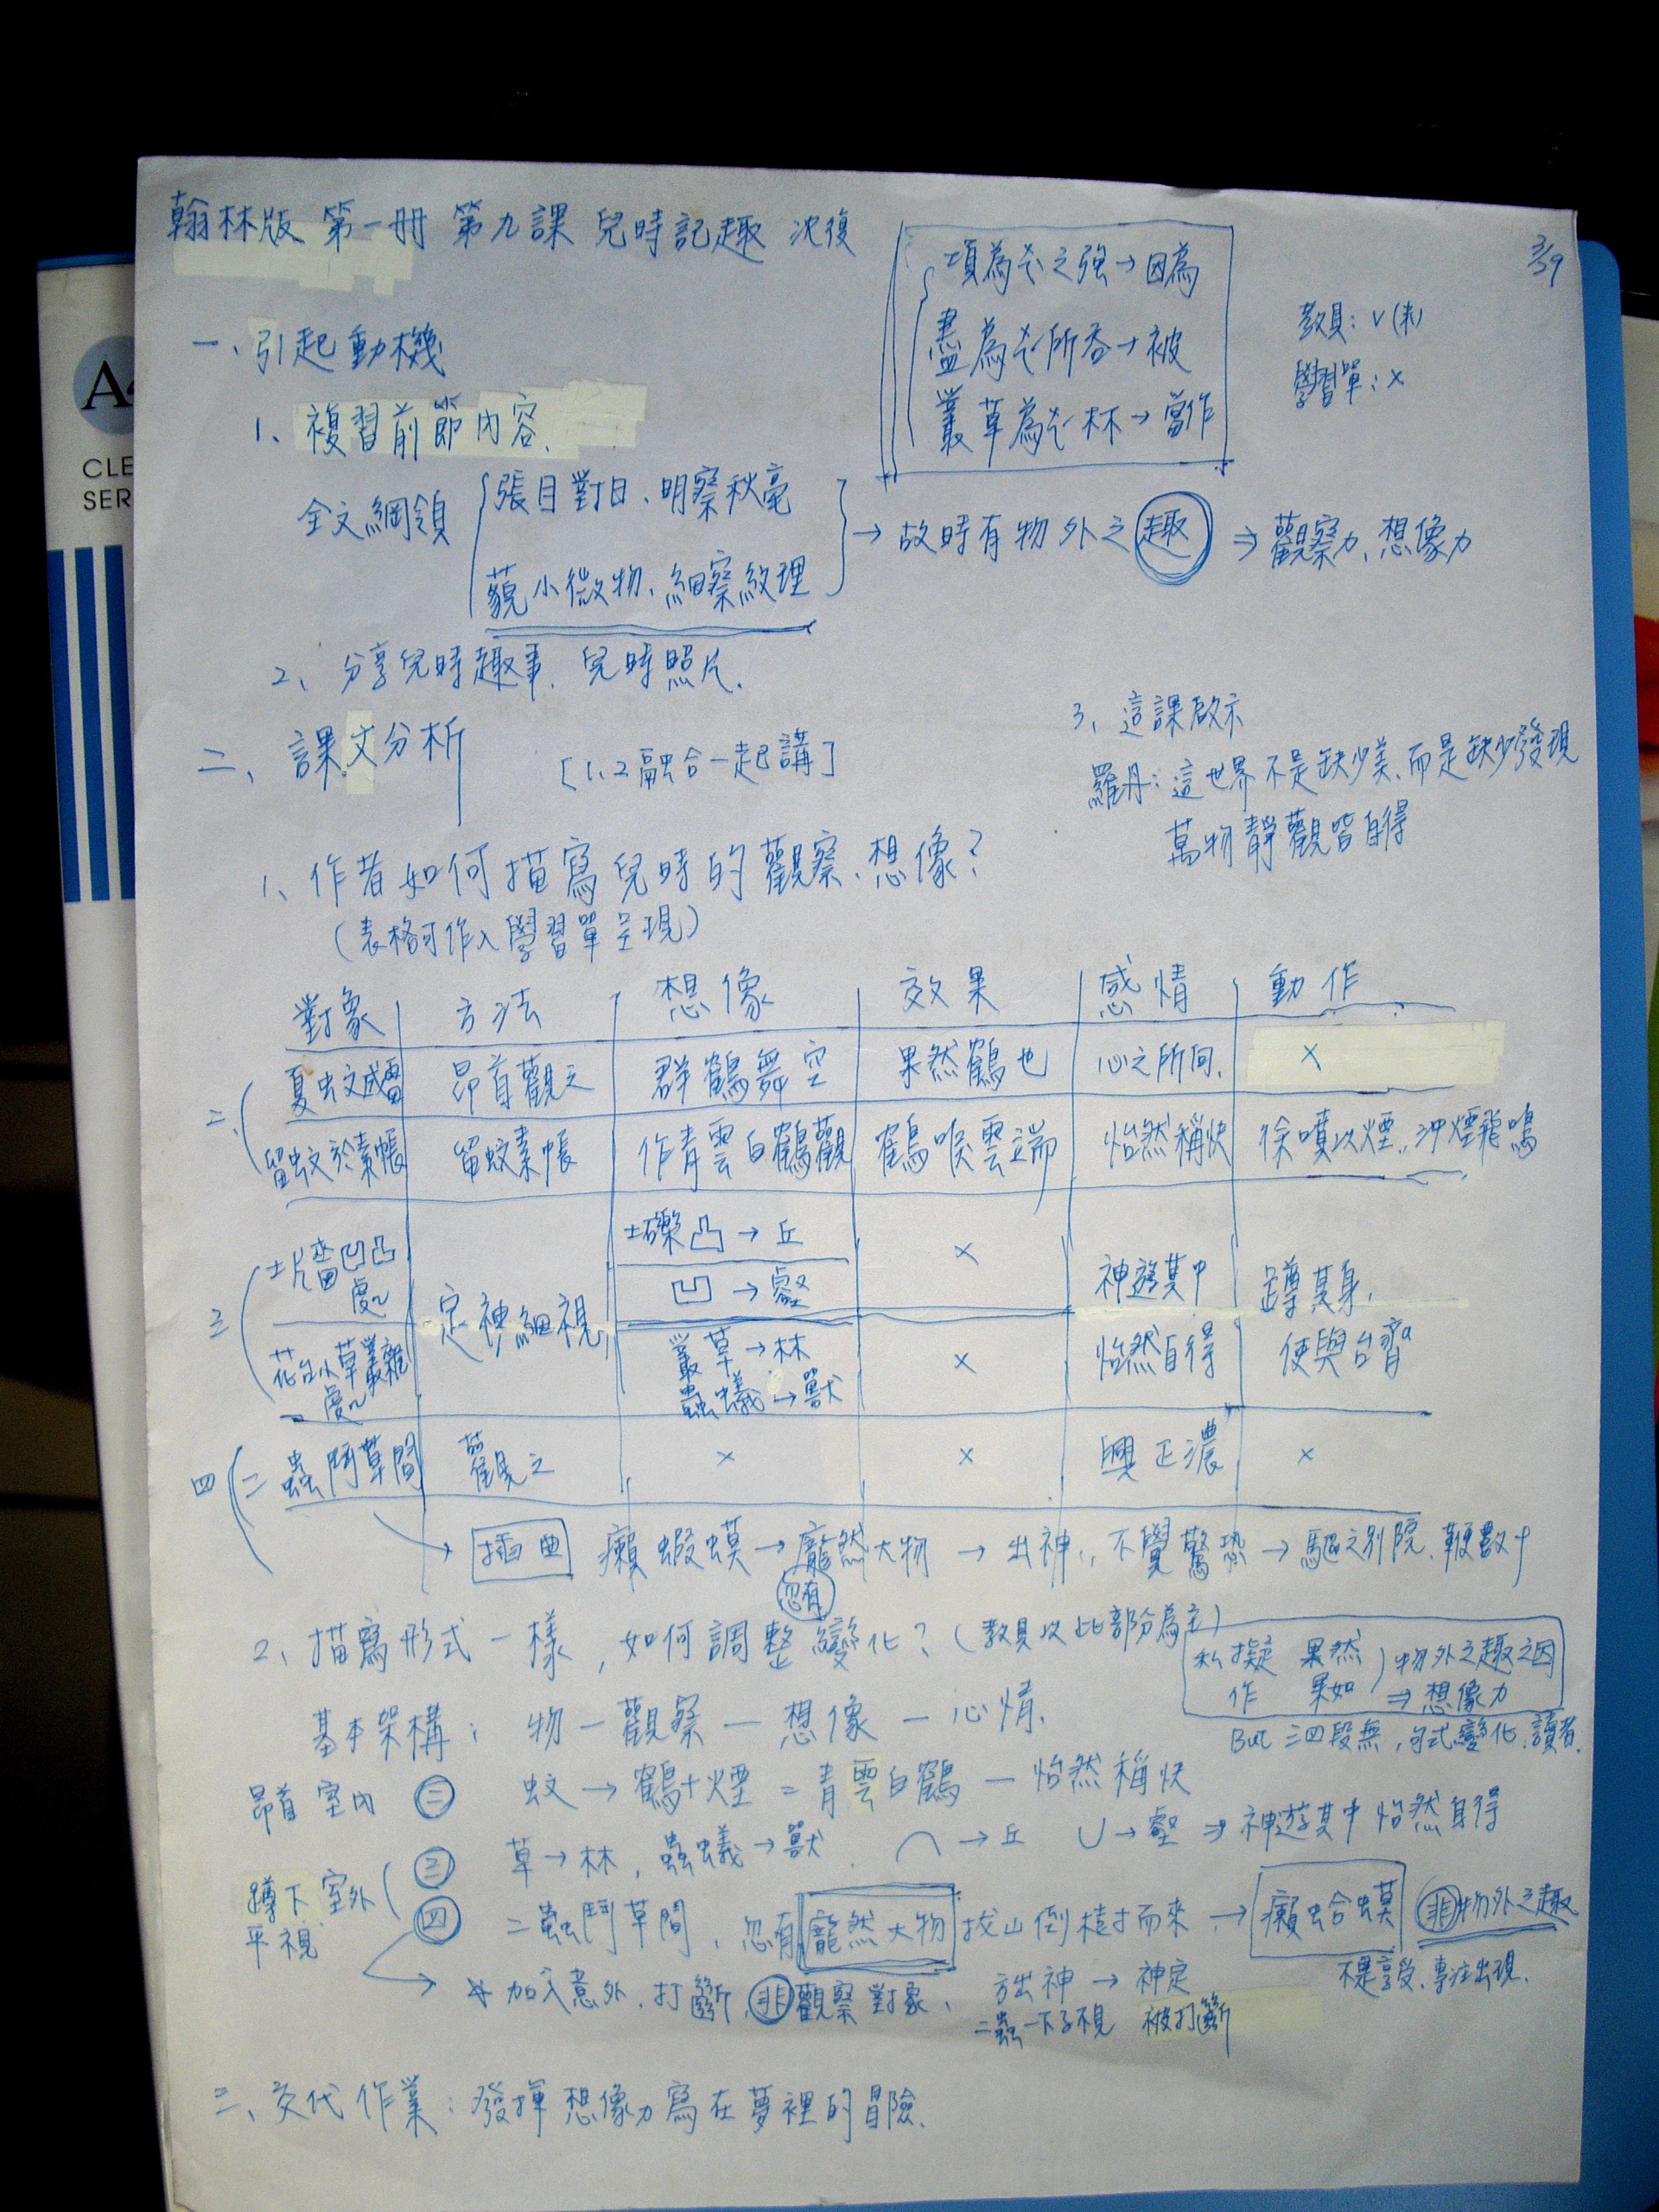 翰林版 第一冊 第九課 兒時記趣 沈復
3/29
項為之強→因為
盡為所吞→被
叢草為林→當作
教具:V(未)
學習單:×
A4
CLE
SER
一、引起動機
1、複習前節內容、
全文綱領
張目對日、明察秋毫
藐小微物、細察紋理
→故時有物外之趣⇒觀察力、想像力
2、分享兒時趣事、兒時照片、
二、課文分析 [1、2融合一起講]
3、這課啟示
羅丹:這世界不是缺少美、而是缺少發現
萬物靜觀皆自得
1、作者如何描寫兒時的觀察、想像?
(表格可作入學習單呈現)
對象 方法 想像 效果 感情 動作
二、 夏蚊成雷 昂首觀之 群鶴舞空 果然鶴也 心之所向、 ×
留蚊於素帳 留蚊素帳 作青雲白鶴觀 鶴唳雲端 怡然稱快 徐噴以煙、沖煙飛鳴
三 土牆凹凸處 定神細視 土礫凸→丘 × 神遊其中 蹲其身、
凹→壑
花台小草叢雜處 叢草→林 × 怡然自得 使與台齊
蟲蟻→獸
四 二蟲鬥草間 觀之 × × 興正濃 ×
→插曲 癩蝦蟆→龐然大物→出神、不覺驚恐→驅之別院、鞭數十
忽有
2、描寫形式一樣,如何調整變化?(教具以此部分為主)
私擬 果然 物外之趣之因
作 果如 ⇒想像力
But 三四段無,句式變化、讀者、
基本架構: 物—觀察—想像—心情、
昂首 室內 二 蚊→鶴+煙=青雲白鶴—怡然稱快
蹲下 室外 三 草→林,蟲蟻→獸、⌒→丘 ∪→壑⇒神遊其中 怡然自得
平視 四 二蟲鬥草間,忽有龐然大物 拔山倒樹而來、→癩蛤蟆 非物外之趣
不是享受、專注出現、
→*加入意外、打斷、非觀察對象、 方出神→神定
二蟲一下子不見 被打斷
三、交代作業:發揮想像力寫在夢裡的冒險、